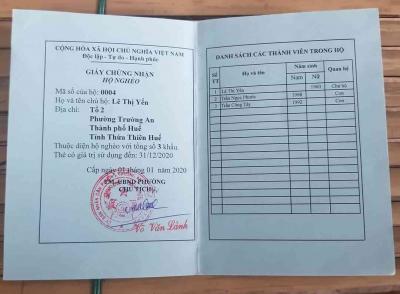 CỘNG HÒA XÃ HỘI CHỦ NGHĨA VIỆT NAM
Độc lập - Tự do - Hạnh phúc
GIẤY CHỨNG NHẬN
HỘ NGHÈO
Mã số của hộ: 0004
Họ và tên chủ hộ: Lê Thị Yến
Địa chỉ: Tổ 2
Phường Trường An
Thành phố Huế
Tỉnh Thừa Thiên Huế
Thuộc diện hộ nghèo với tổng số 3 khẩu.
Thẻ có giá trị sử dụng đến: 31/12/2020
Cấp ngày 01 tháng 01 năm 2020
TM. UBND PHƯỜNG
CHỦ TỊCH
Võ Văn Lành
DANH SÁCH CÁC THÀNH VIÊN TRONG HỘ
Số TT Họ và tên Năm sinh Quan hệ
Nam Nữ
1 Lê Thị Yến 1960 Chủ hộ
2 Trần Ngọc Phước 1998 Con
3 Trần Công Tây 1992 Con